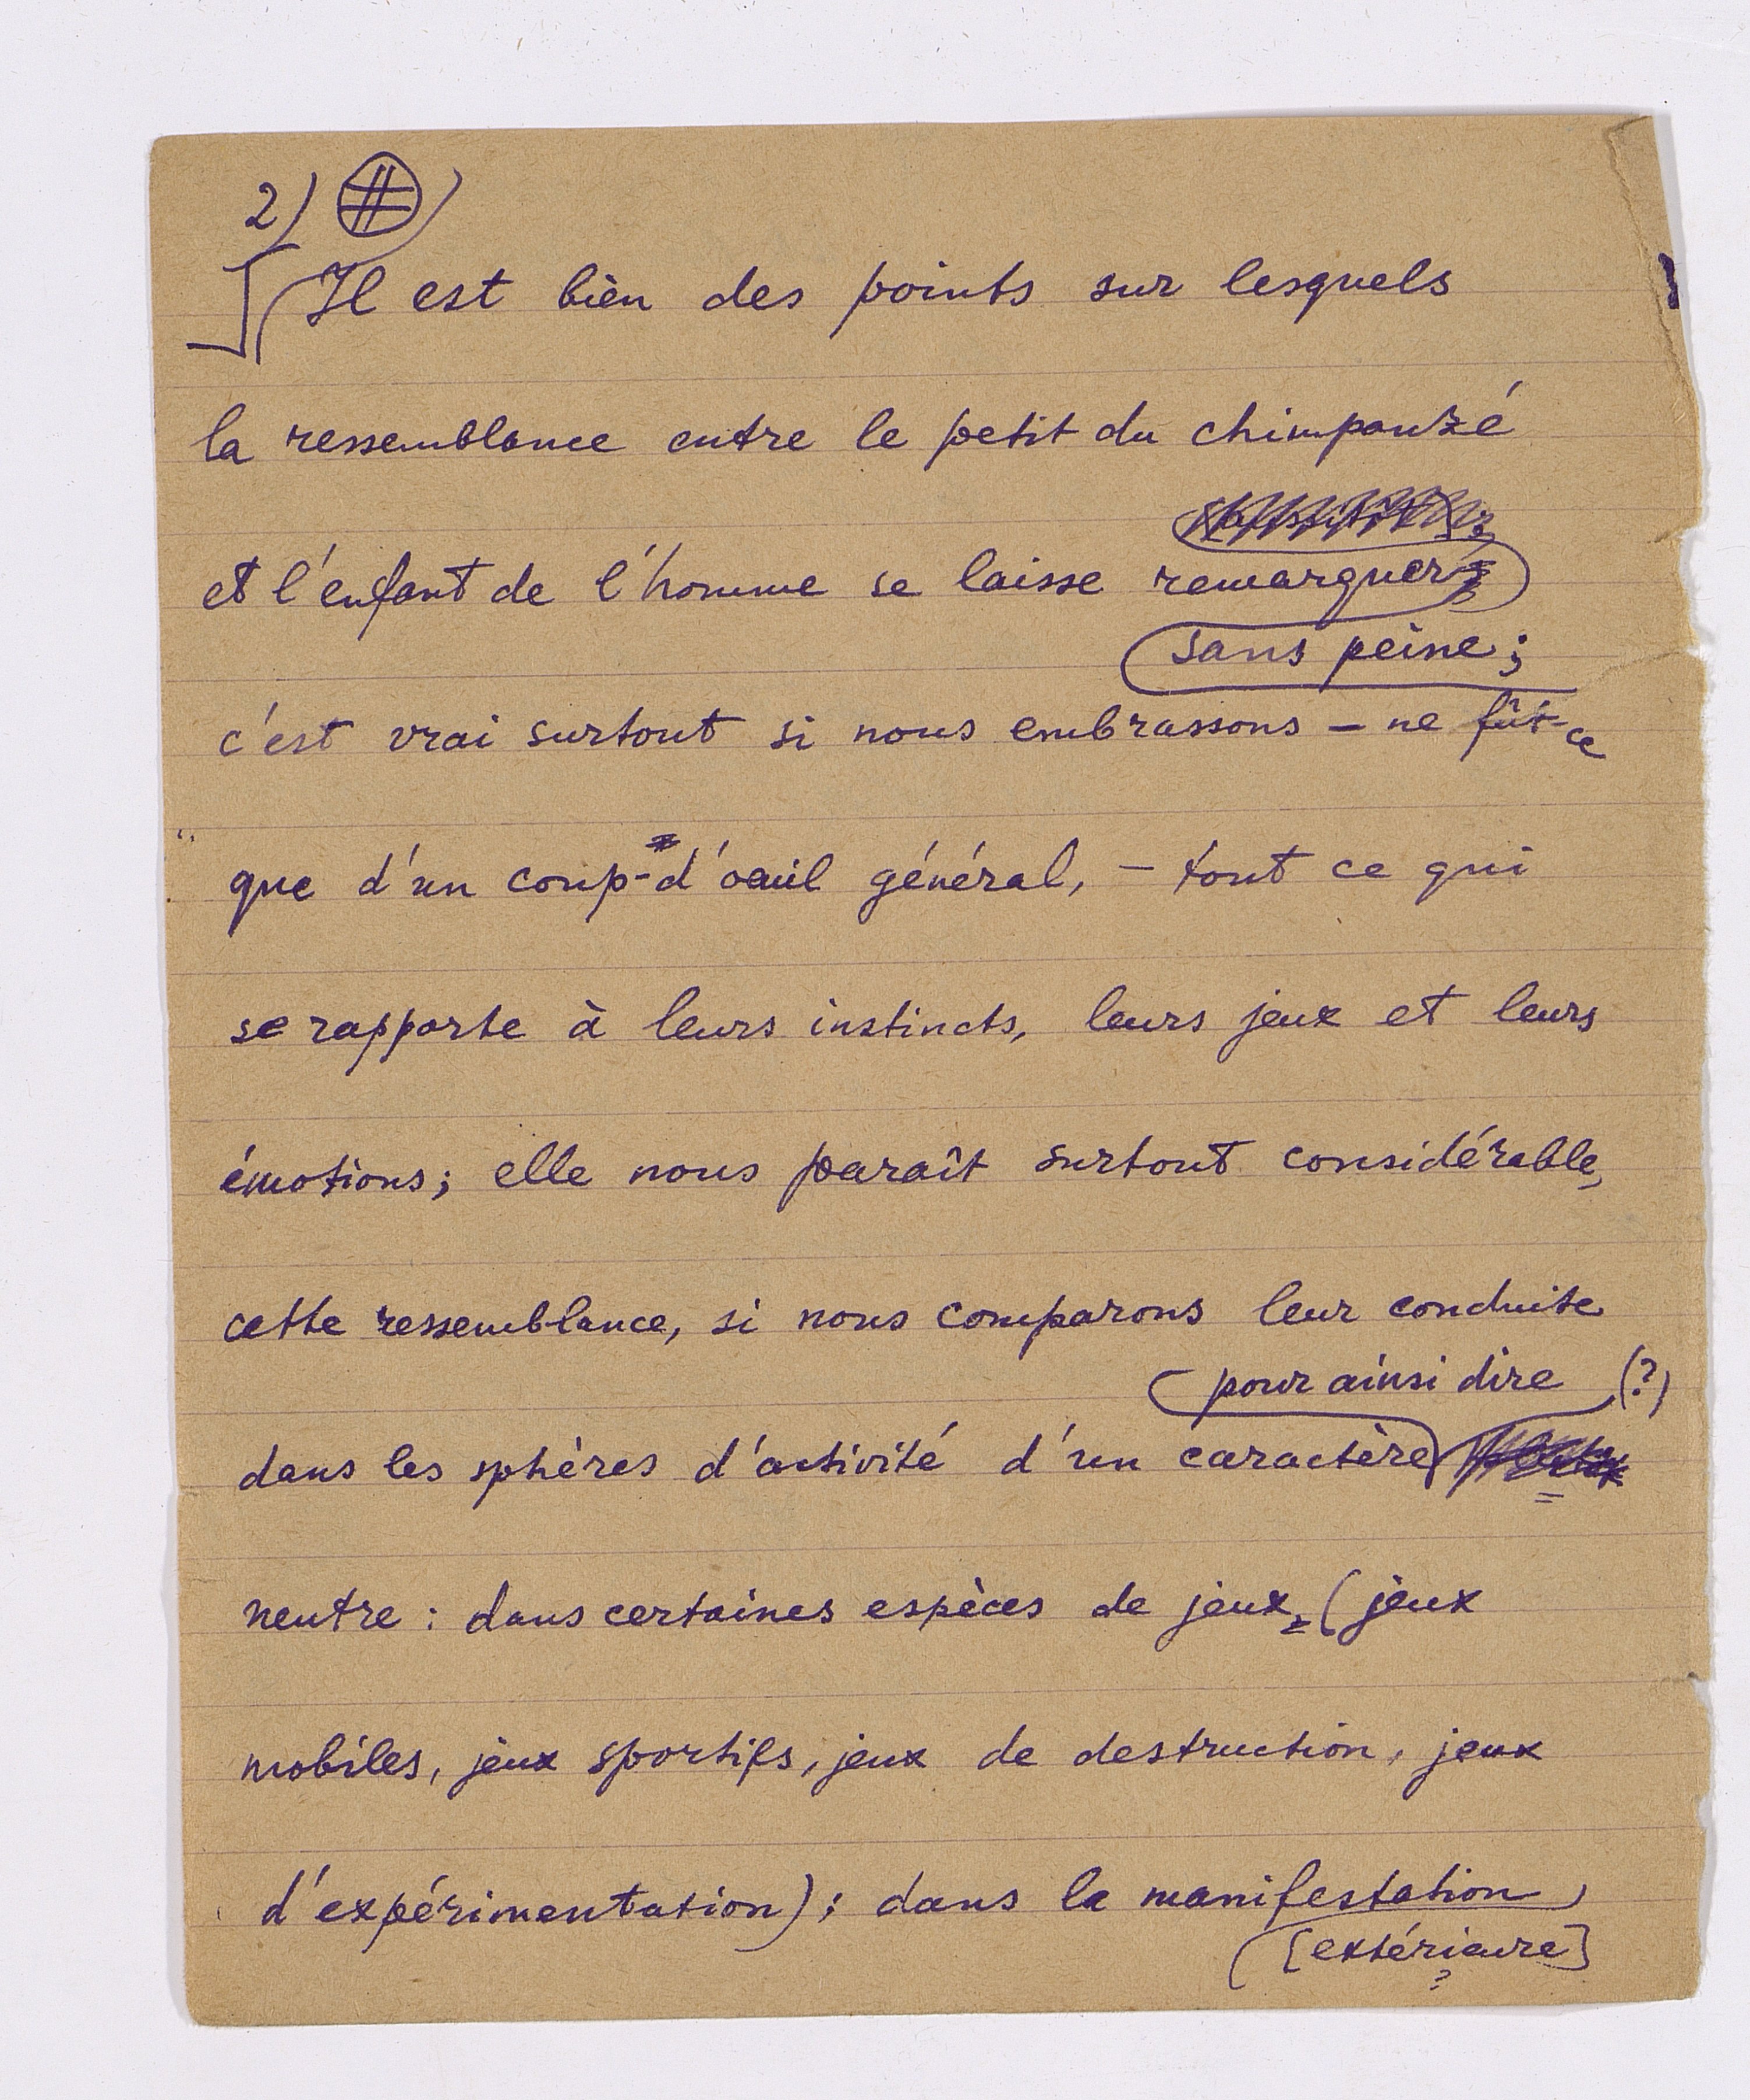 2) #)
Il est bien des points sur lesquels
la ressemblance entre le petit du chimpanzé
et l'enfant de l'homme se laisse remarquer
sans peine;
c'est vrai surtout si nous embrassons – ne fût-ce
que d'un coup-d'œuil général, – tout ce qui
se rapporte à leurs instincts, leurs jeux et leurs
émotions; elle nous paraît surtout considérable,
cette ressemblance, si nous comparons leur conduite
pour ainsi dire (?)
dans les sphères d'activité d'un caractère
neutre: dans certaines espèces de jeux, (jeux
mobiles, jeux sportifs, jeux de destruction, jeux
d'expérimentation); dans la manifestation
[extérieure]
?